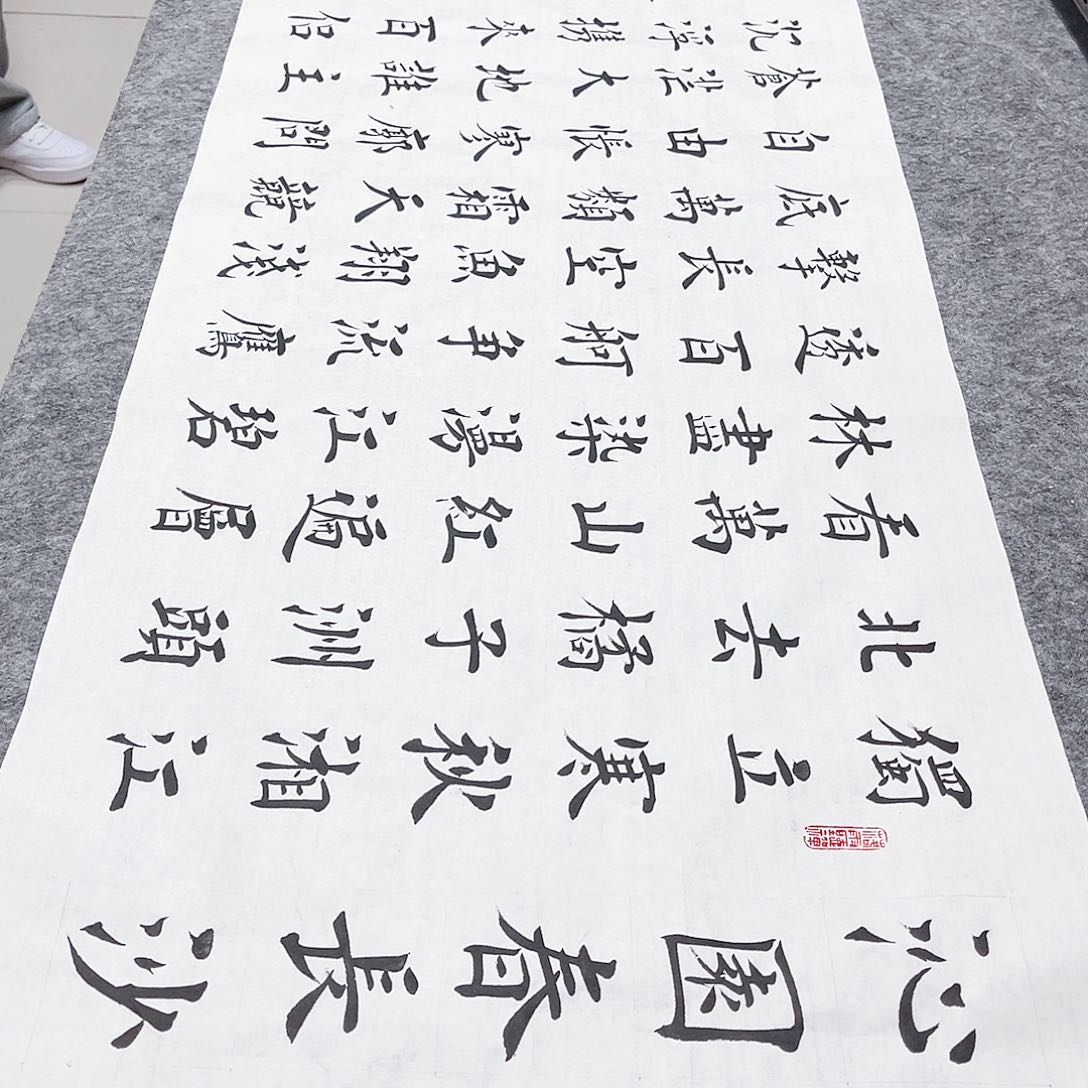 沁園春長沙
獨立寒秋湘江
北去橘子洲頭
看萬山紅遍層
林盡染漫江碧
透百舸争流鷹
擊長空魚翔淺
底萬類霜天競
自由悵寥廓問
蒼茫大地誰主
沉浮携來百侣